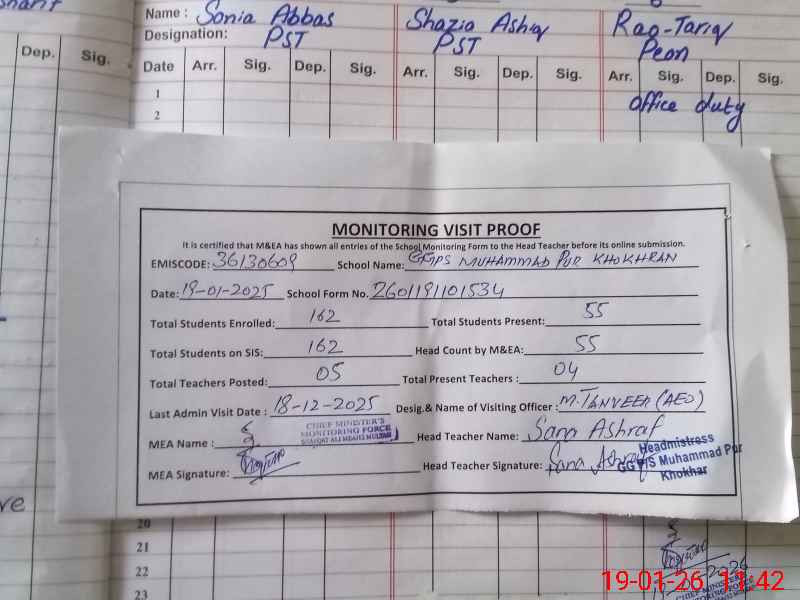 Name : Sonia Abbas Shazia Ashiq Rao-Tariq
Designation: PST PST Peon
Dep. Sig. Date Arr. Sig. Dep. Sig. Arr. Sig. Dep. Sig. Arr. Sig. Dep. Sig.
1 office duty
2
MONITORING VISIT PROOF
It is certified that M&EA has shown all entries of the School Monitoring Form to the Head Teacher before its online submission.
EMISCODE: 36130609 School Name: GGPS MUHAMMAD PUR KHOKHRAN
Date: 19-01-2025 School Form No. 2601191101534
Total Students Enrolled: 162 Total Students Present: 55
Total Students on SIS: 162 Head Count by M&EA: 55
Total Teachers Posted: 05 Total Present Teachers : 04
Last Admin Visit Date : 18-12-2025 Desig.& Name of Visiting Officer : M.TANVEER (AEO)
MEA Name : CHIEF MINISTER'S MONITORING FORCE Head Teacher Name: Sana Ashraf
MEA Signature: Head Teacher Signature: Sana Ashraf
Headmistress
Muhammad Pur
Khokhar
20
21
22
23
19-01-26 11:42